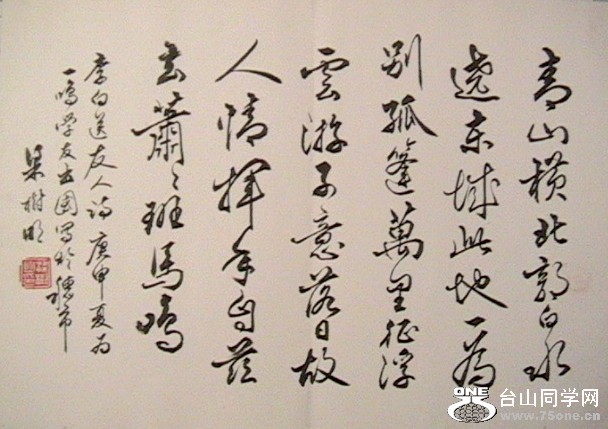 青山横北郭白水
遶东城此地一為
别孤篷萬里征浮
雲游子意落日故
人情揮手自茲
去蕭〻班馬鳴
李白送友人诗 庚申夏为
一鳴学友出国写於穗市
梁樹明
ONE
台山同学网
www.75one.cn